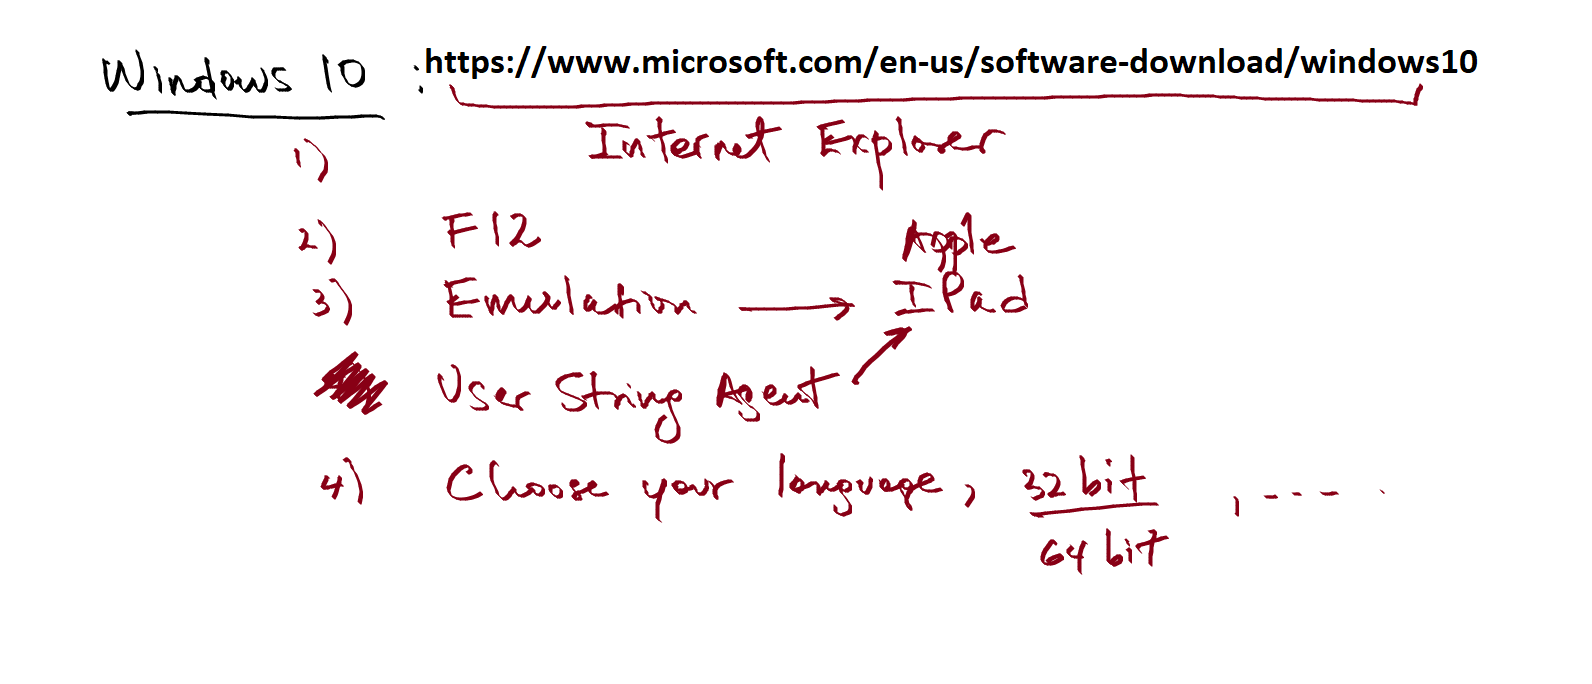 Windows 10 : https://www.microsoft.com/en-us/software-download/windows10
1) Internet Explorer
2) F12
Apple
3) Emulation → IPad
User String Agent
4) Choose your language, 32 bit , ---- .
64 bit